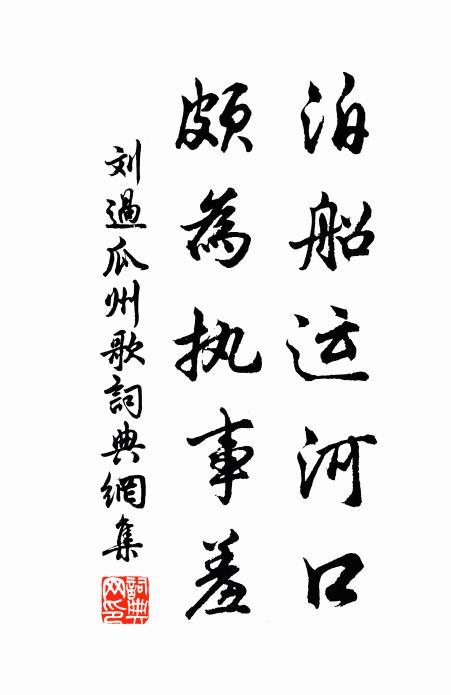 泊船运河口
颇为执事羞
刘過瓜州歌詞典網集
詞典网印